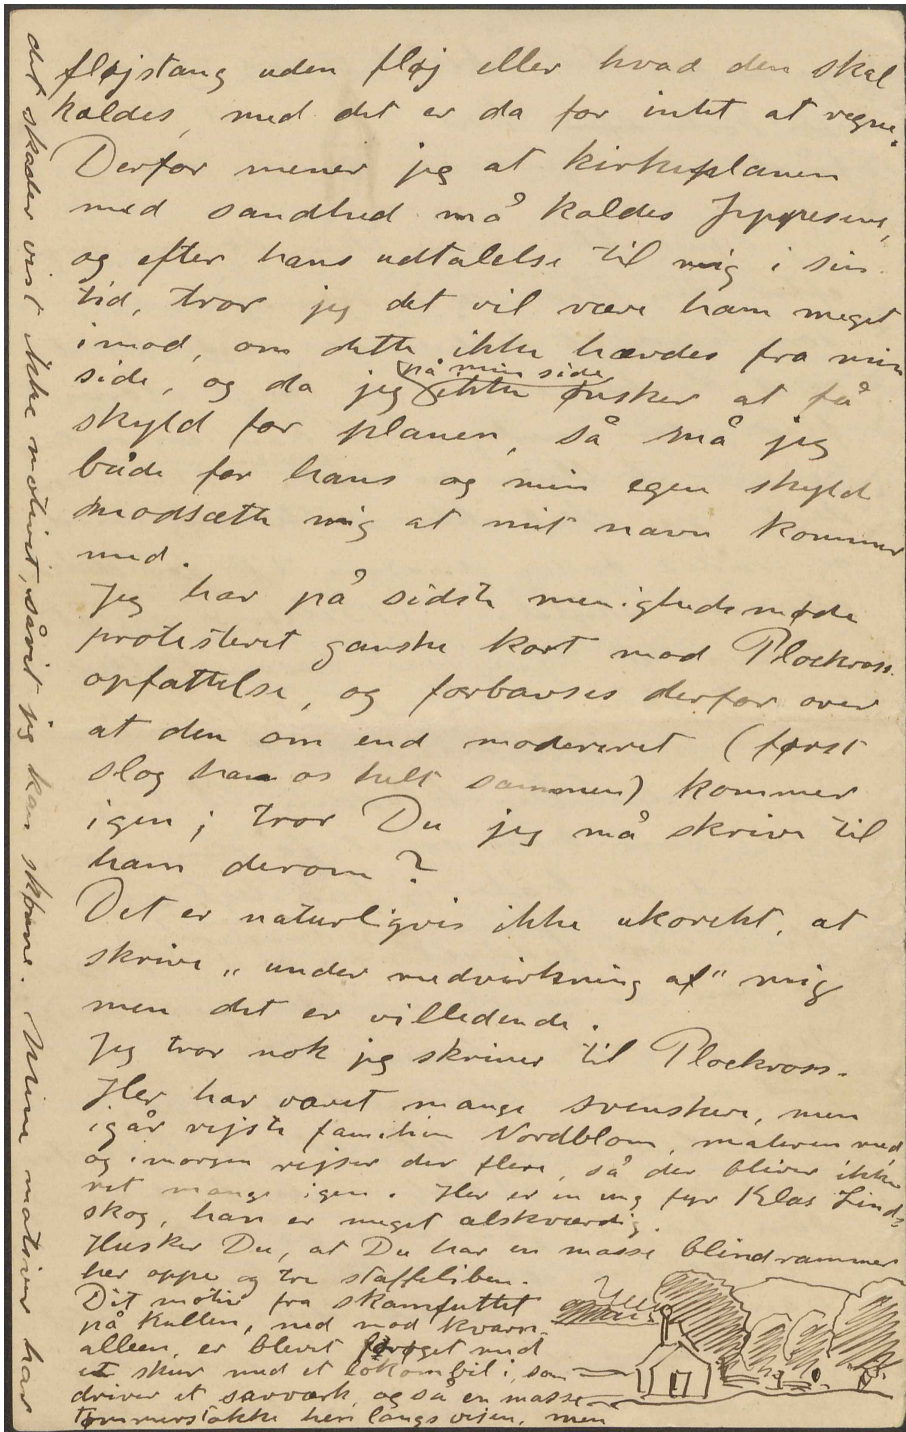 fløjstang uden fløj eller hvad den skal
kaldes, med det er da for intet at regne.
Derfor mener jeg at kirkeplanen
med sandhed må kaldes Jeppesens,
og efter hans udtalelse til mig i sin
tid, tror jeg det vil være ham meget
imod, om dette ikke hævdes fra min
på min side
side, og da jeg ikke ønsker at få
skyld for planen, så må jeg
både for hans og min egen skyld
modsætte mig at mit navn kommer
med.
Jeg har på sidste menighedsmøde
protesteret ganske kort mod Plockross
opfattelse, og forbavses derfor over
at den om end modereret (først
slog han os helt sammen) kommer
igen; tror Du jeg må skrive til
ham derom?
Det er naturligvis ikke ukorekt, at
skrive „under medvirkning af“ mig
men det er villedende.
Jeg tror nok jeg skriver til Plockross.
Her har været mange svenskere, men
igår rejste familien Nordblom, maleren med
og imorgen rejser der flere, så der bliver ikke
ret mange igen. Her er en ung fyr Klas Linds
skog, han er meget elskværdig.
Husker Du, at Du har en masse blindrammer
her oppe og tre staffeliben.
Dit motiv fra skamfuttet
på Kullen, ned mod kvarn
alleen, er blevet forøget med
et skur med et lokomobil i, som
driver et savværk, og så en masse
tømmerstokke hen langs vejen, men
det skader vist ikke motivet, såvit jeg kan skønne. Mine motiver har